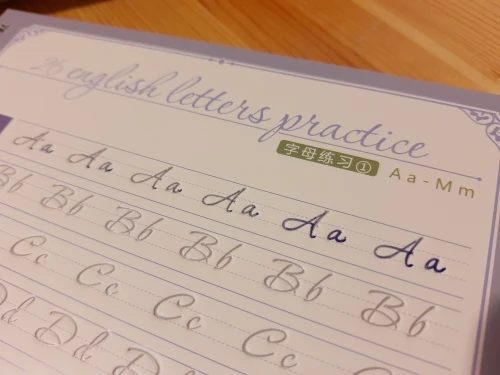 26 english letters practice
字母练习① Aa-Mm
Aa Aa Aa Aa Aa Aa
Bb Bb Bb Bb Bb Bb
Cc Cc Cc Cc Cc
Dd Dd D